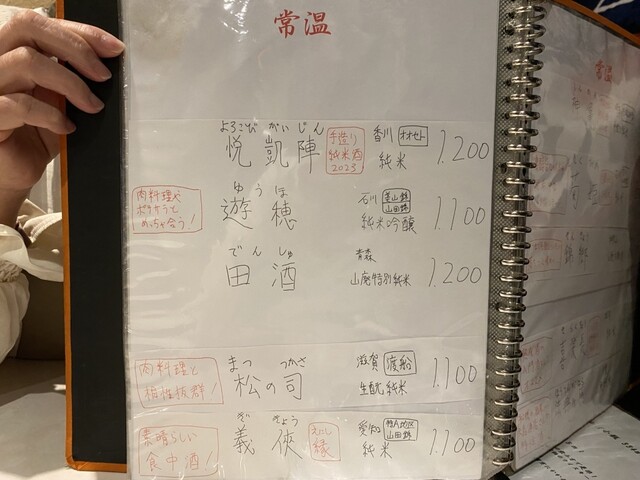 常温
よろこび がい じん
悦 凱 陣
手造り
純米酒
2023
香川 オオセト
純米
1.200
肉料理や
めっちゃ合う!
ゆう ほ
遊 穂
石川
山田錦
純米吟醸
1.100
でん しゅ
田 酒
青森
山廃特別純米
1.200
肉料理と
相性抜群!
まつ つかさ
松の司
滋賀 渡船
生酛純米
1.100
素晴らしい
食中酒!
ぎ きょう
義 侠
縁
愛知 特A地区
山田錦
純米
1.100
常温